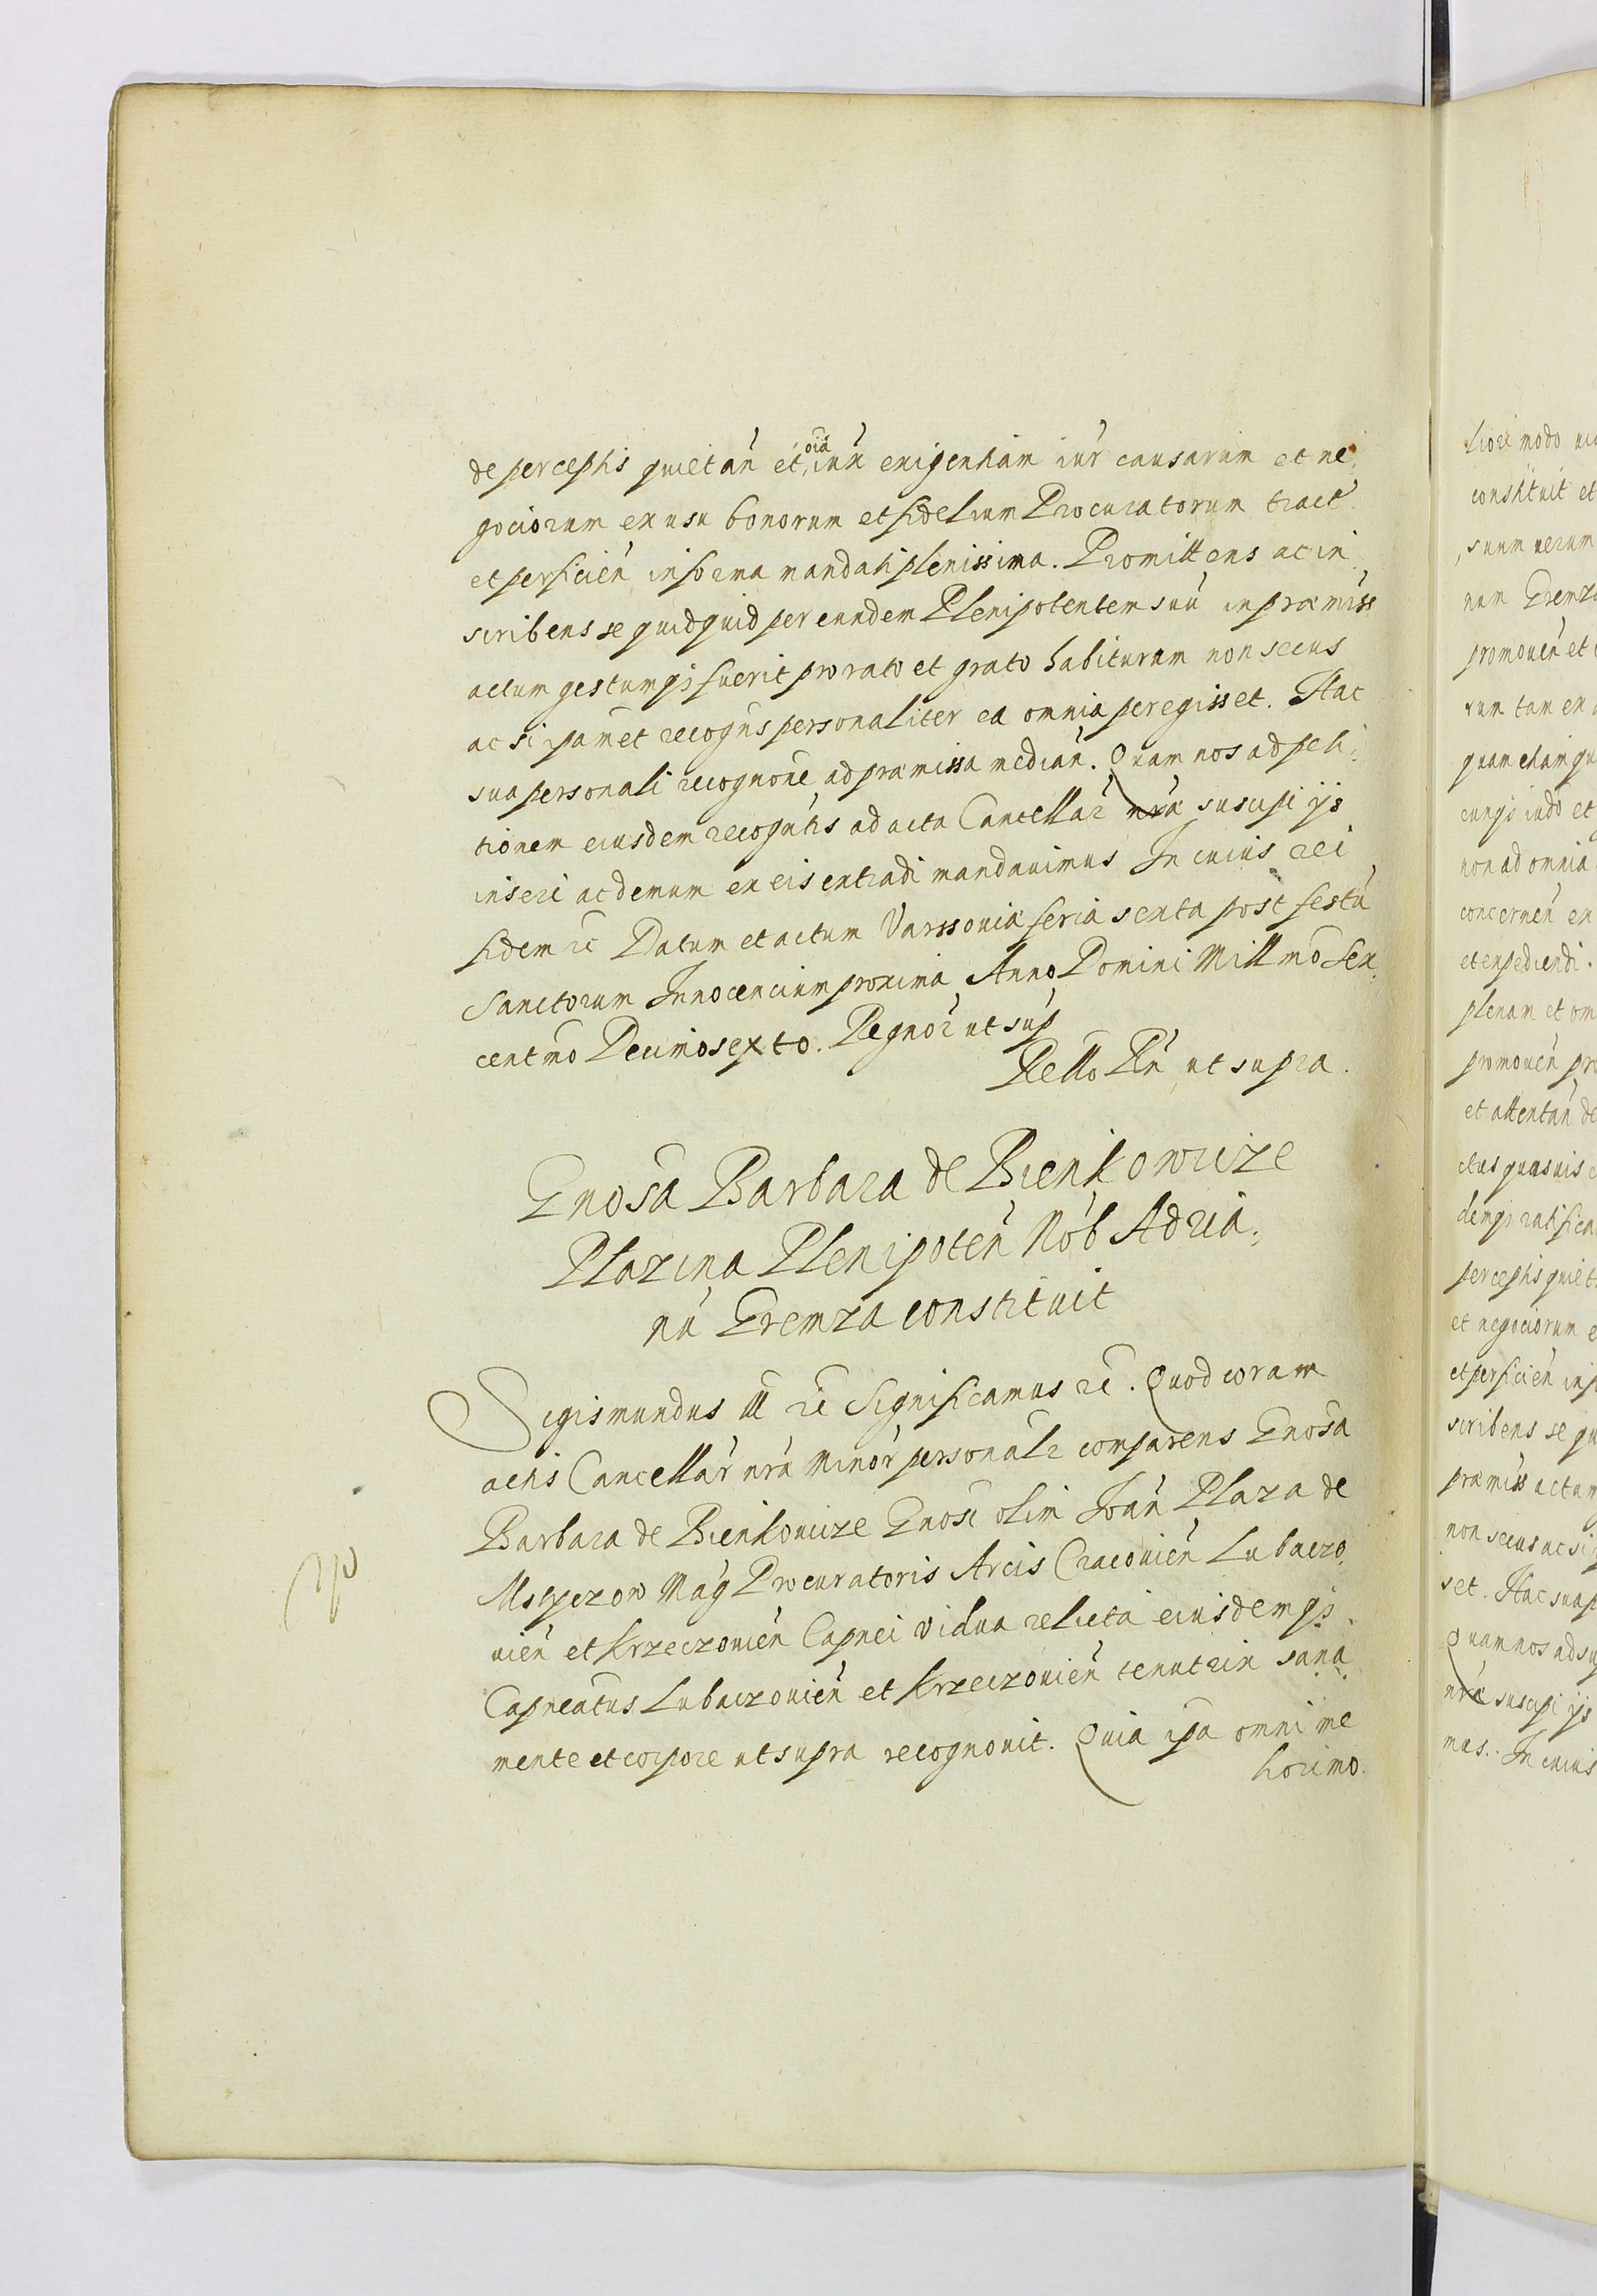 de perceptis quietan̄ et oīa iux exigentiam iur̄ causarum et ne:
gociorum ex usu bonorum et fidelium Procuratorum tract̄
et perficien̄ in forma mandati plenissima. Promittens ac in
scribens se quidquid per eundem Plenipotentem suū in præmiss
actum gestumq₃ fuerit pro rato et grato habituram non secus
ac si ipamet recogn̄s personaliter ea omnia peregisset. Hac
sua personali recogn̄one ad præmissa median̄. Quam nos ad peti:
tionem eiusdem recogn̄tis ad acta Cancellar̄ nr̄a suscipi ijs
inseri ac demum ex eis extradi mandauimus In cuius rei
fidem ꝛc Datum et actum Varssouiæ feria sexta post festū
Sanctorum Innocencium proxima Anno Domini Millmō Sex
centmō Decimosexto. Regnor̄ ut sup̄
Rello Pn̄ ut supra.
Gnosā Barbara de Bienkowicze
Plazina Plenipoten̄ Nob̄ Adria:
nū Gremza constituit
Sigismundus III ꝛc Significamus ꝛc. Quod coram
actis Cancellar̄ nr̄a Minor̄ personalr comparens Gnosā
Barbara de Bienkowicze Gnosī olim Ioan̄ Plaza de
Msczyczow Maḡ Procuratoris Arcis Cracouien̄ Lubaczo
uien̄ et Krzeczouien̄ Capnei vidua relicta eiusdemq₃
Capneatus Lubaczouien̄ et Krzeczouien̄ tenutrix sana
mente et corpore ut supra recognouit. Quia ipa omni me
liori mo.
liori modo
constituit et
suum uerum
num Gremza
promouen̄ et
rum tam ex
quam etiam
cunq₃ iudō et
non ad omnia
concernen̄ ex
et expediendi.
plenam et om
promouen̄ pro
et attentan̄ de
ctus quasuis
demq₃ ratifica
perceptis quiet
et negociorum
et perficien̄ in
scribens se qu
præmiss actum
non secus ac si
set. Hac sua
Quam nos ad
nr̄a suscipi ijs
mus. In cuius